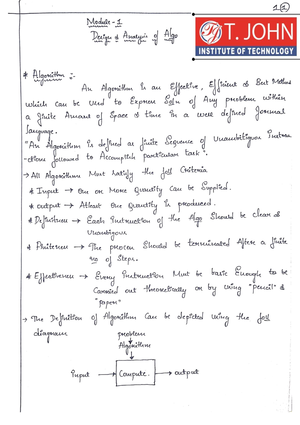 1(1)
Module - 1
Design & Analysis of Algo
T. JOHN
INSTITUTE OF TECHNOLOGY
* Algorithm :-
An Algorithm is an Effective, Efficient & Best Method
which can be used to Express Soln of Any problem within
a finite Amount of Space & time in a well defined formal
language.
"An Algorithm is defined as finite Sequence of Unambiguous Instru
-ctions followed to Accomplish particular task".
→ All Algorithms Must Satisfy the foll Criteria
* Input → One or More Quantity Can be Supplied.
* output → Atleast One Quantity is produced.
* Definitness → Each Instruction of the Algo Should be Clear &
Unambiguous
* Finiteness → The process Should be terminated After a finite
no of Steps.
* Effectiveness → Every Instruction Must be basic Enough to be
Carried out theoretically or by using "pencil" &
"paper"
→ The Definition of Algorithm Can be depicted using the foll
diagram
problem
Algorithm
Input → Compute. → output